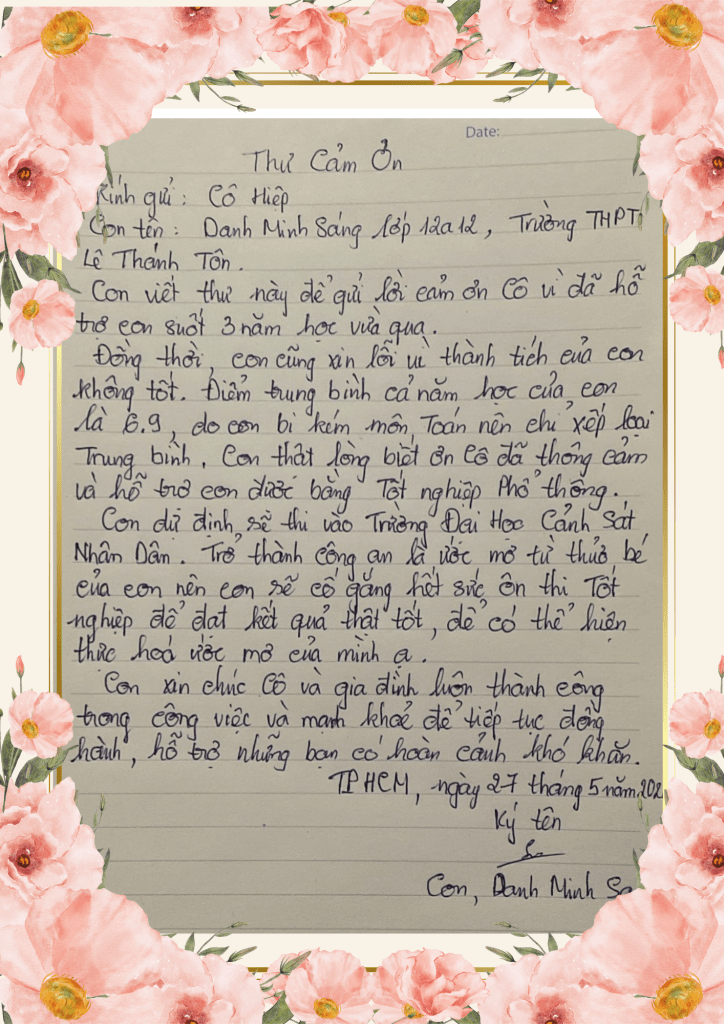 Date:
Thư Cảm Ơn
Kính gửi : Cô Hiệp
Con tên : Danh Minh Sáng lớp 12a12, Trường THPT
Lê Thánh Tôn.
Con viết thư này để gửi lời cảm ơn Cô vì đã hỗ
trợ con suốt 3 năm học vừa qua.
Đồng thời, con cũng xin lỗi vì thành tích của con
không tốt. Điểm trung bình cả năm học của con
là 6.9, do con bị kém môn Toán nên chỉ xếp loại
Trung bình. Con thật lòng biết ơn Cô đã thông cảm
và hỗ trợ con được bằng Tốt nghiệp Phổ thông.
Con dự định sẽ thi vào Trường Đại Học Cảnh Sát
Nhân Dân. Trở thành công an là ước mơ từ thuở bé
của con nên con sẽ cố gắng hết sức ôn thi Tốt
nghiệp để đạt kết quả thật tốt, để có thể hiện
thực hoá ước mơ của mình ạ.
Con xin chúc Cô và gia đình luôn thành công
trong công việc và mạnh khoẻ để tiếp tục đồng
hành, hỗ trợ những bạn có hoàn cảnh khó khăn.
TP HCM, ngày 27 tháng 5 năm 202
Ký tên
Con, Danh Minh Sa